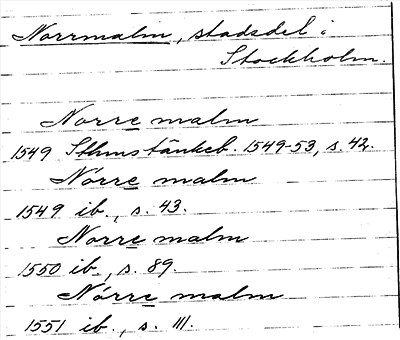 Norrmalm, stadsdel i
Stockholm.
Norre malm
1549 Sthms tänkeb. 1549-53, s. 42.
Nörre malm
1549 ib., s. 43.
Norre malm
1550 ib., s. 89.
Nórre malm
1551 ib., s. 111.